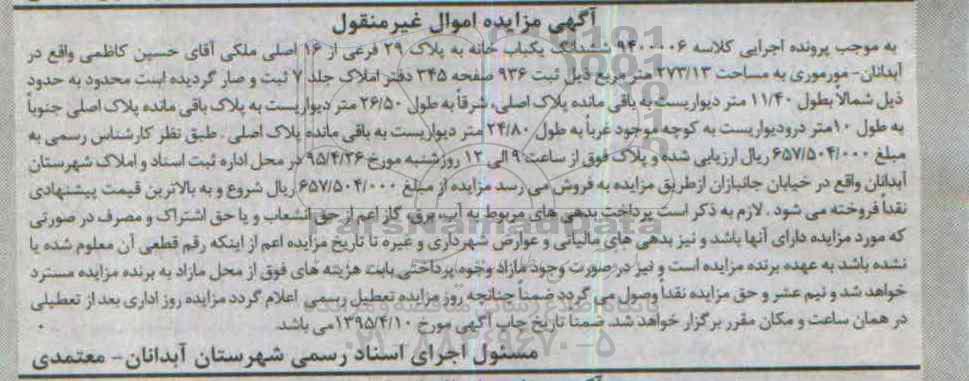 آگهی مزایده اموال غیرمنقول
به موجب پرونده اجرایی کلاسه ۹۴۰۰۰۰۶ ششدانگ یکباب خانه به پلاک ۲۹ فرعی از ۱۶ اصلی ملکی آقای حسین کاظمی واقع در
آبدانان- مورموری به مساحت ۲۷۳/۱۳ متر مربع ذیل ثبت ۹۳۶ صفحه ۲۴۵ دفتر املاک جلد ۷ ثبت و صار گردیده است محدود به حدود
ذیل شمالاً بطول ۱۱/۴۰ متر دیواریست به باقی مانده پلاک اصلی، شرقاً به طول ۲۶/۵۰ متر دیواریست به پلاک باقی مانده پلاک اصلی جنوباً
به طول ۱۰متر درودیواریست به کوچه موجود غرباً به طول ۲۴/۸۰ متر دیواریست به باقی مانده پلاک اصلی . طبق نظر کارشناس رسمی به
مبلغ ۶۵۷/۵۰۴/۰۰۰ ریال ارزیابی شده و پلاک فوق از ساعت ۹ الی ۱۲ روز شنبه مورخ ۹۵/۴/۲۶ در محل اداره ثبت اسناد و املاک شهرستان
آبدانان واقع در خیابان جانبازان ازطریق مزایده به فروش می رسد مزایده از مبلغ ۶۵۷/۵۰۴/۰۰۰ ریال شروع و به بالاترین قیمت پیشنهادی
نقداً فروخته می شود . لازم به ذکر است پرداخت بدهی های مربوط به آب، برق، گاز اعم از حق انشعاب و یا حق اشتراک و مصرف در صورتی
که مورد مزایده دارای آنها باشد و نیز بدهی های مالیاتی و عوارض شهرداری و غیره تا تاریخ مزایده اعم از اینکه رقم قطعی آن معلوم شده یا
نشده باشد به عهده برنده مزایده است و نیز در صورت وجود مازاد وجوه پرداختی بابت هزینه های فوق از محل مازاد به برنده مزایده مسترد
خواهد شد و نیم عشر و حق مزایده نقداً وصول می گردد ضمناً چنانچه روز مزایده تعطیل رسمی اعلام گردد مزایده روز اداری بعد از تعطیلی
در همان ساعت و مکان مقرر برگزار خواهد شد. ضمنا تاریخ چاپ آگهی مورخ ۱۳۹۵/۴/۱۰ می باشد.
مسئول اجرای اسناد رسمی شهرستان آبدانان- معتمدی
ParsNamadData
۰۲۱-۸۸۳۴۹۶۷۰-۵